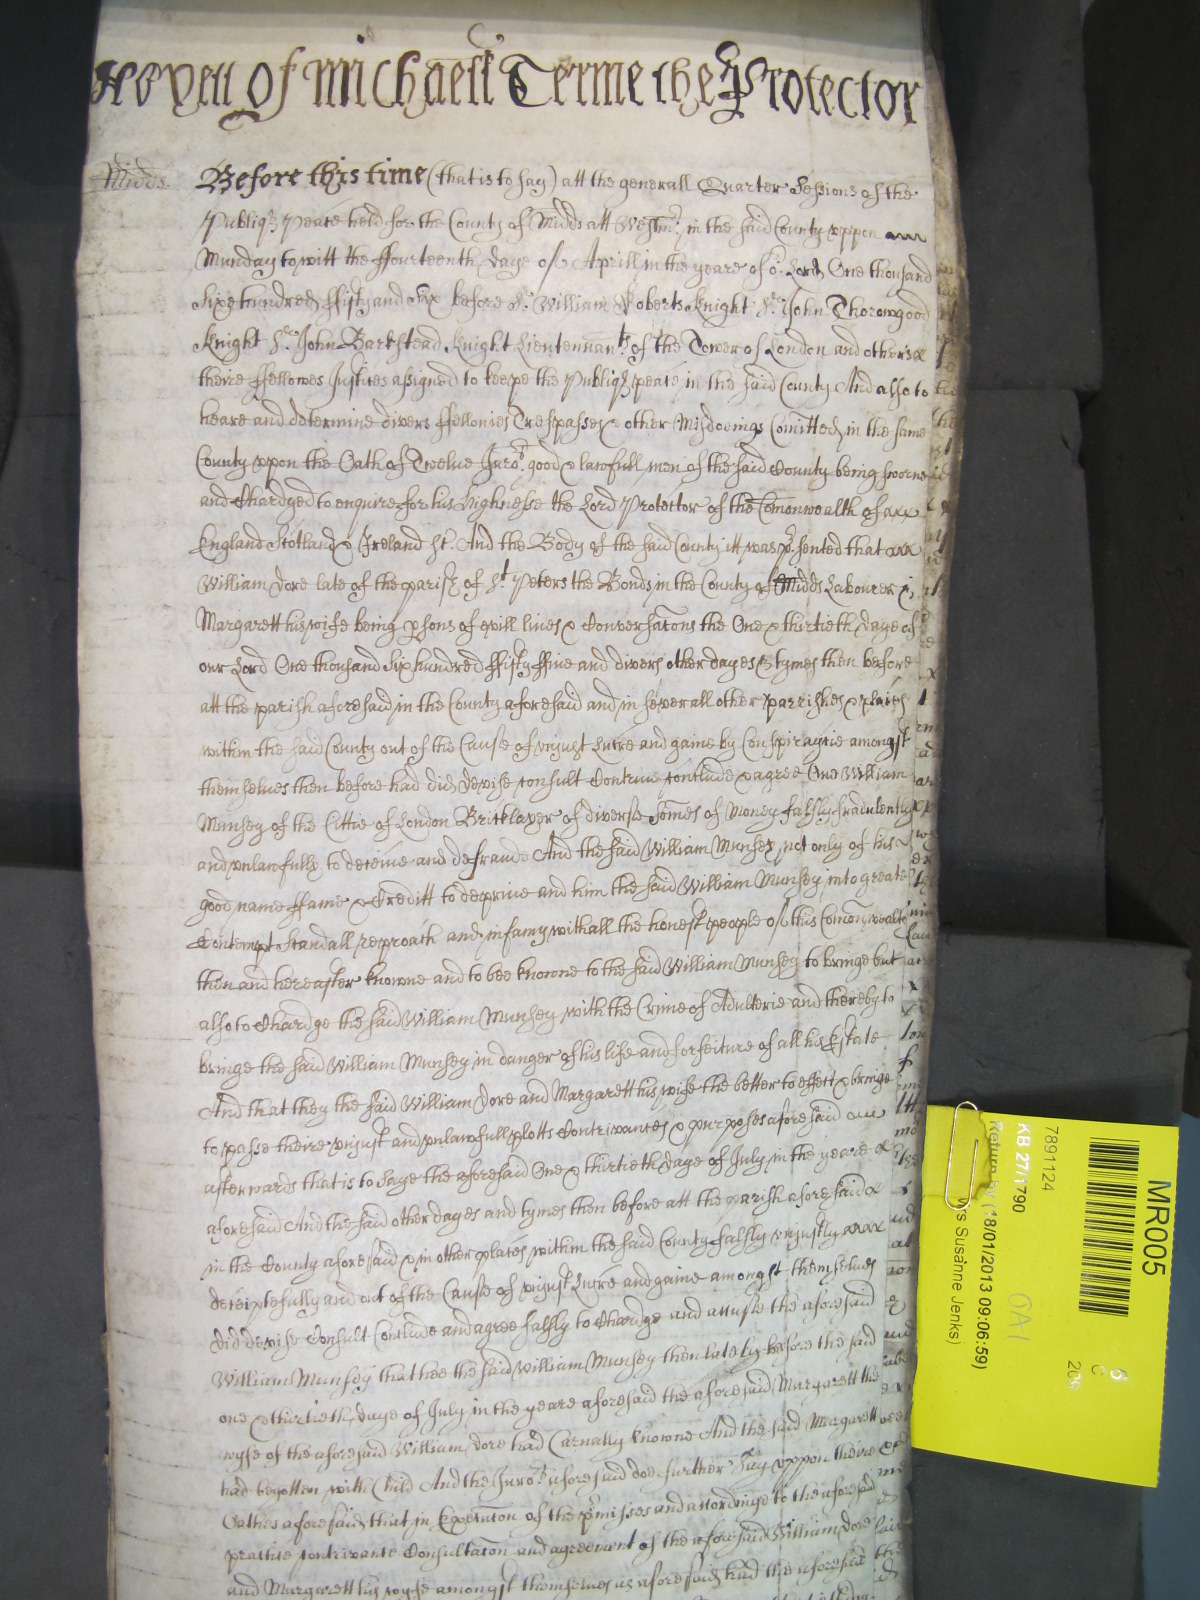 Yet of Michaell Terme the Protector
Midds.
Before this time (that is to say) att the generall Quarter Sessions of the
Publiq peace held for the County of Midds att Westmr. in the said County uppon
Munday to witt the ffourteenth daye of Aprill in the yeare of or. Lord One thousand
Sixe hundred ffifty and Six before Sr. William Roberts Knight Sr. John Thorowgood
Knight Sr. John Barkstead Knight Lieutennant of the Tower of London and others
theire ffellowes Justices assigned to keepe the Publiq peace in the said County And also to
heare and determine divers ffellonies Trespasses & other Misdoeings Comitted in the same
County uppon the Oath of Twelve Juror. good & lawfull men of the said County being sworne
and Chardged to enquire for his highnesse the Lord Protector of the Comonwealth of
England Scotland & Ireland &c. And the Body of the said County itt was psented that
William Dore late of the parish of St. Peters the Bonds in the County of Midds Labourer &
Margarett his wife being psons of evill lives & Conversacons the One & thirtieth daye of
our Lord One thousand Six hundred ffifty ffive and divers other dayes & tymes then before
att the parish aforesaid in the County aforesaid and in severall other parrishes & places
within the said County out of the Cause of uniust Lucre and gaine by Conspiracie amongst
themselves then before had did devise consult Contrive conclude & agree One William
Munsey of the Cittie of London Bricklayer of diverse somes of Money falsly fradulently
and unlawfully to deceive and defraude And the said William Munsey not only of his
good name ffame & Creditt to deprive and him the said William Munsey into greate
Contempt Scandall reproach and infamy withall the honest people of this Comonwealth
then and hereafter knowne and to bee knowne to the said William Munsey to bringe but
also to Chardge the said William Munsey with the Crime of Adulterie and thereby to
bringe the said William Munsey in danger of his life and forfeiture of all his Estate
And that they the said William Dore and Margarett his wife the better to effect & bringe
to passe theire uniust and unlawfull plotts Contrivances & purposes aforesaid
afterwards that is to saye the aforesaid One & thirtieth daye of July in the yeare
aforesaid And the said other dayes and tymes then before att the parish aforesaid
in the County aforesaid & in other places within the said County falsly uniustly
deceiptefully and out of the Cause of uniust Lucre and gaine amongst themselves
did devise Consult Conclude and agree falsly to Chardge and accuse the aforesaid
William Munsey that hee the said William Munsey then lately before the said
one & thirtieth daye of July in the yeare aforesaid the aforesaid Margarett the
wyfe of the aforesaid William Dore had Carnally knowne And the said Margarett
had begotten with Child And the Juror. aforesaid doe further say uppon theire
Oathes aforesaid that in Execucon of the pmisses and accordinge to the aforesaid
practise contrivance Consultacon and agreement of the aforesaid William Dore
and Margarett his wyfe amongst themselves as aforesaid had the aforesaid
MR005
7891124
KB 27/1790
Return by (18/01/2013 09:06:59)
Mrs Susanne Jenks)